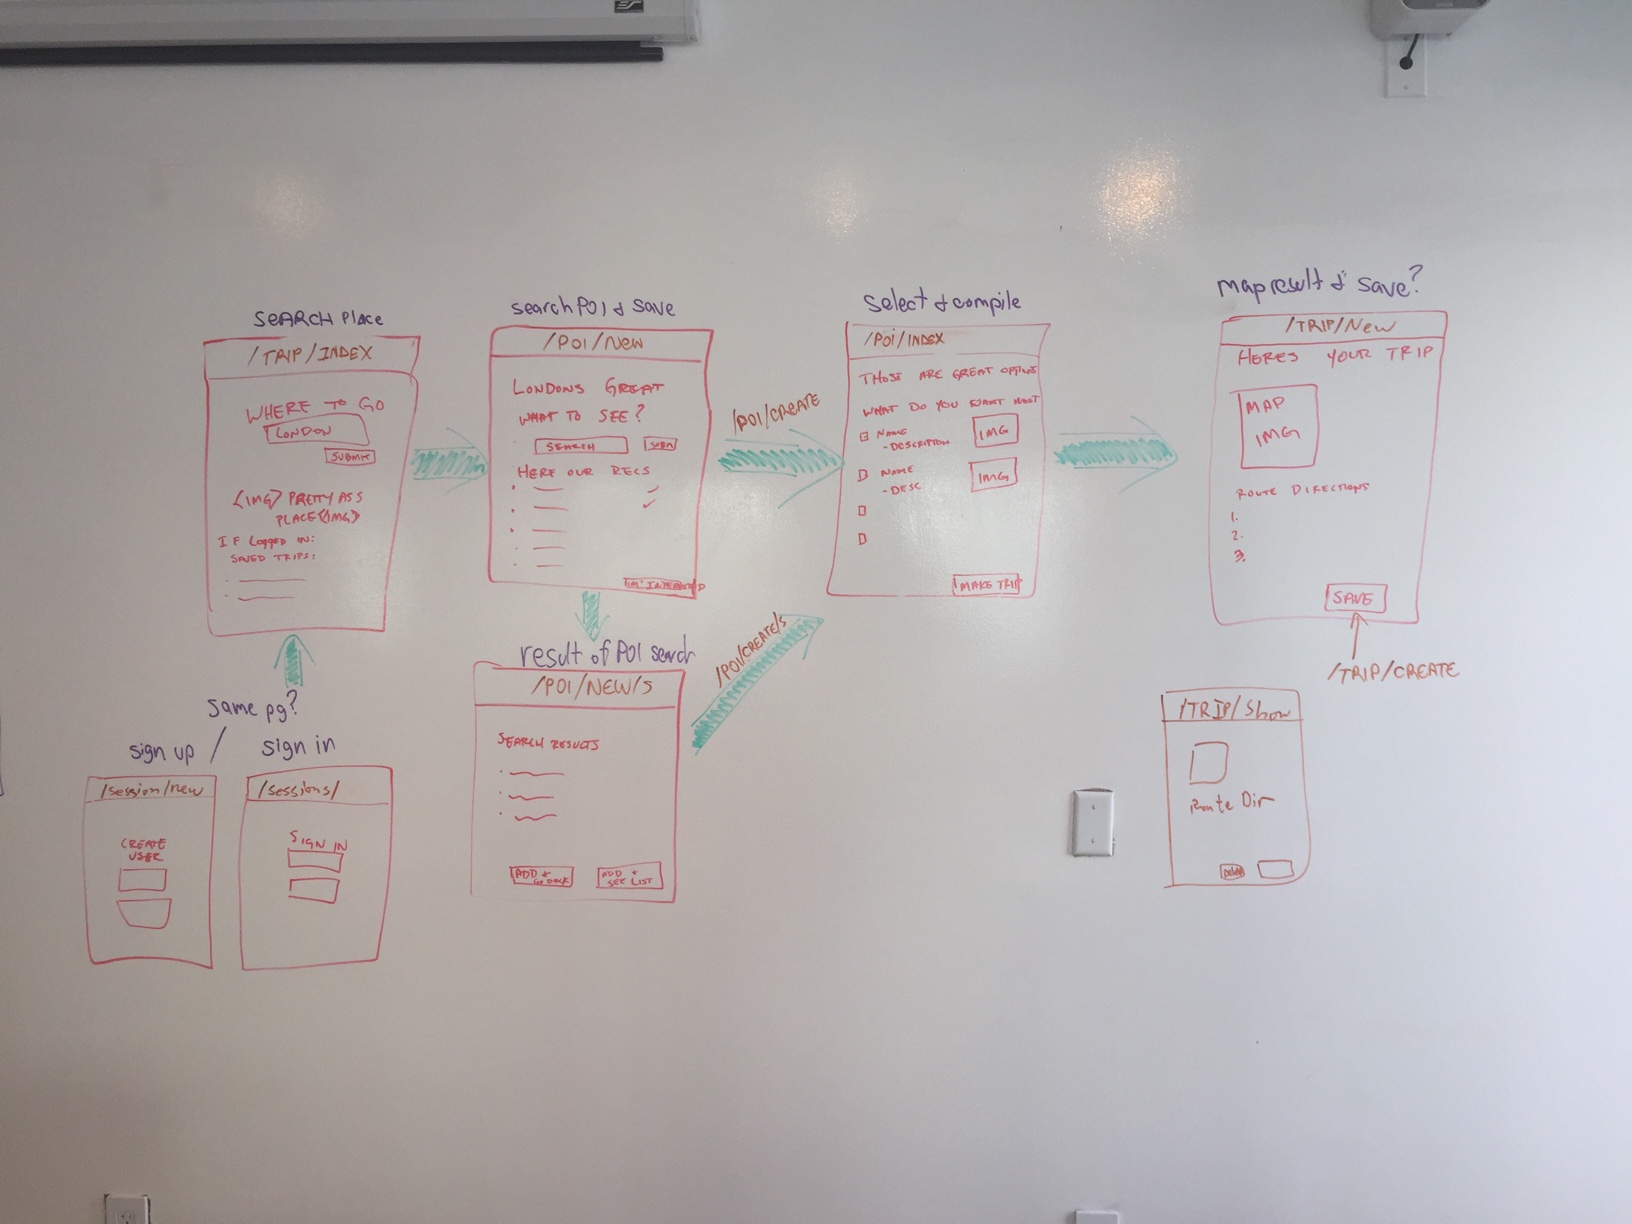 SEARCH Place
/TRIP/INDEX
WHERE TO GO
LONDON
SUBMIT
<IMG> PRETTY ASS
PLACE <IMG>
IF Logged IN:
SAVED TRIPS:
search POI & save
/POI/New
LONDONS GREAT
WHAT TO SEE?
SEARCH
HERE OUR RECS
/POI/CREATE
select & compile
/POI/INDEX
THOSE ARE GREAT OPTIONS
WHAT DO YOU WANT MOST
NAME
-DESCRIPTION
IMG
NAME
-DESC
IMG
MAKE TRIP
map result & save?
/TRIP/New
HERES YOUR TRIP
MAP
IMG
ROUTE DIRECTIONS
1.
2.
3.
SAVE
/TRIP/CREATE
same pg?
sign up / sign in
/session/new
CREATE
USER
/sessions/
SIGN IN
result of POI search
/POI/NEW/S
SEARCH RESULTS
ADD +
GO BACK
ADD +
SEE LIST
/POI/CREATE/S
/TRIP/Show
Route Dir